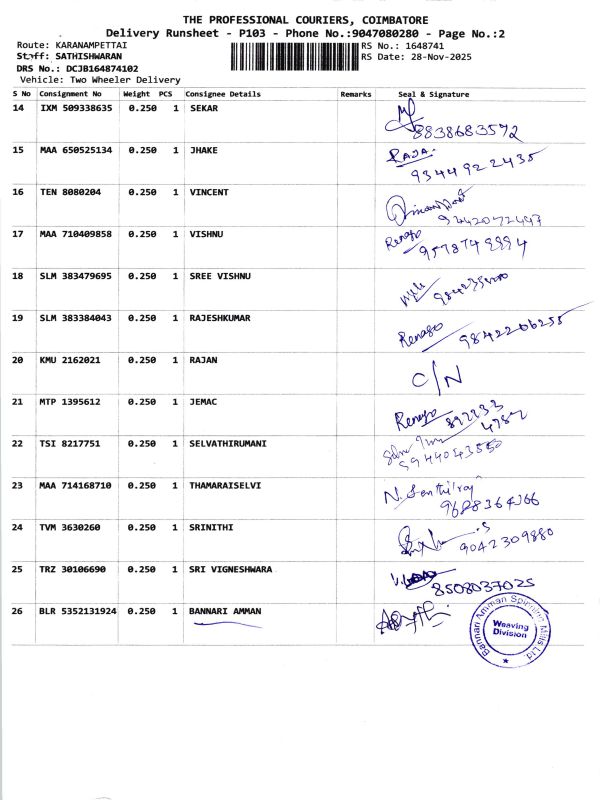 THE PROFESSIONAL COURIERS, COIMBATORE
Delivery Runsheet - P103 - Phone No.:9047080280 - Page No.:2
Route: KARANAMPETTAI
RS No.: 1648741
Staff: SATHISHWARAN
RS Date: 28-Nov-2025
DRS No.: DCJB164874102
Vehicle: Two Wheeler Delivery
S No Consignment No Weight PCS Consignee Details Remarks Seal & Signature
14 IXM 509338635 0.250 1 SEKAR
8838683572
15 MAA 650525134 0.250 1 JHAKE RAJA.
9344922435
16 TEN 8080204 0.250 1 VINCENT
17 MAA 710409858 0.250 1 VISHNU
9578749994
18 SLM 383479695 0.250 1 SREE VISHNU
19 SLM 383384043 0.250 1 RAJESHKUMAR
9842206255
20 KMU 2162021 0.250 1 RAJAN C/N
21 MTP 1395612 0.250 1 JEMAC
22 TSI 8217751 0.250 1 SELVATHIRUMANI
9944043550
23 MAA 714168710 0.250 1 THAMARAISELVI N. Senthilraj
24 TVM 3630260 0.250 1 SRINITHI
9042309880
25 TRZ 30106690 0.250 1 SRI VIGNESHWARA
8508037025
26 BLR 5352131924 0.250 1 BANNARI AMMAN
Bannari Amman Spinning Mills Ltd.
Weaving
Division